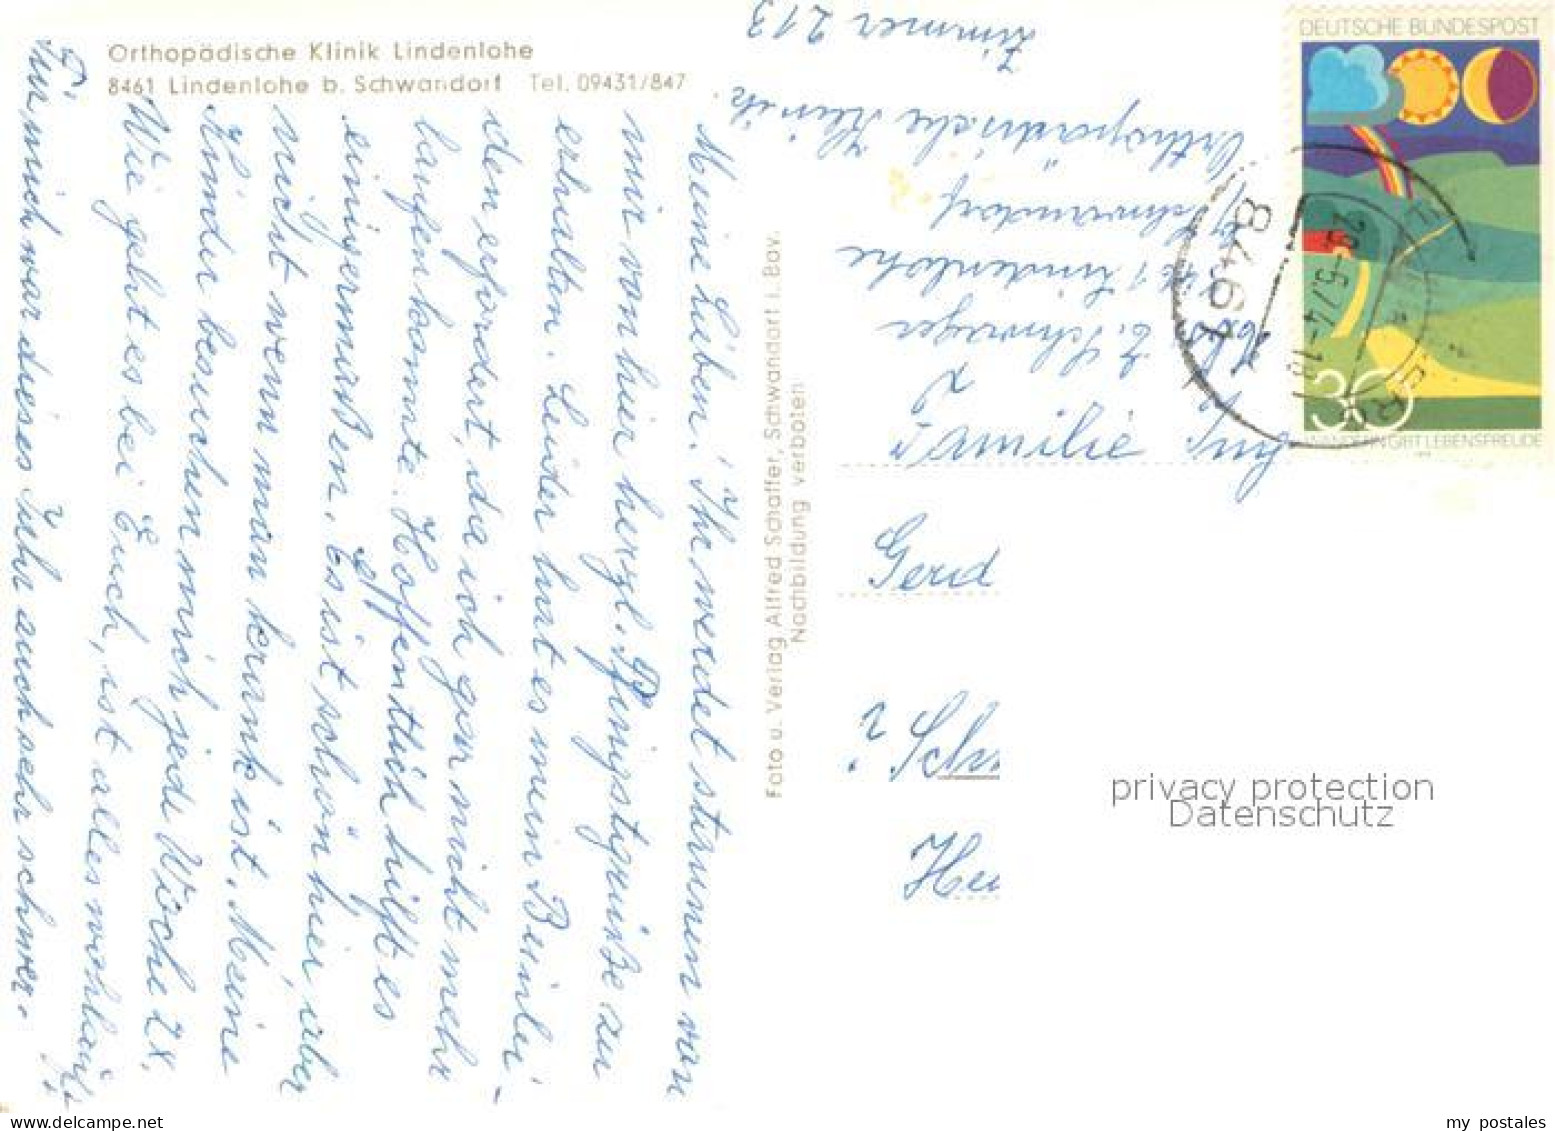 Orthopädische Klinik Lindenlohe
8461 Lindenlohe b. Schwandorf Tel. 09431/847
Meine Lieben! Ihr werdet staunen von
mir von hier herzl. Pfingstgrüße zu
erhalten. Leider hat es mein Beinlei-
den erfordert, da ich gar nicht mehr
laufen konnte. Hoffentlich hilft es
einigermaßen. Es ist schön hier, aber
nicht wenn man krank ist. Meine
Kinder besuchen mich jede Woche 2x.
Wie geht es bei Euch, ist alles wohlauf?
Für mich war dieses Jahr auch sehr schwer.
Foto u. Verlag Alfred Schaffer, Schwandorf i. Bay.
Nachbildung verboten
Abs. E. Schwager
8461 Lindenlohe
b/Schwandorf
Orthopädische Klinik.
Zimmer 213
DEUTSCHE BUNDESPOST
30
WANDERN GIBT LEBENSFREUDE
8461
Familie
Gerd
Sch
He
privacy protection
Datenschutz
my postales